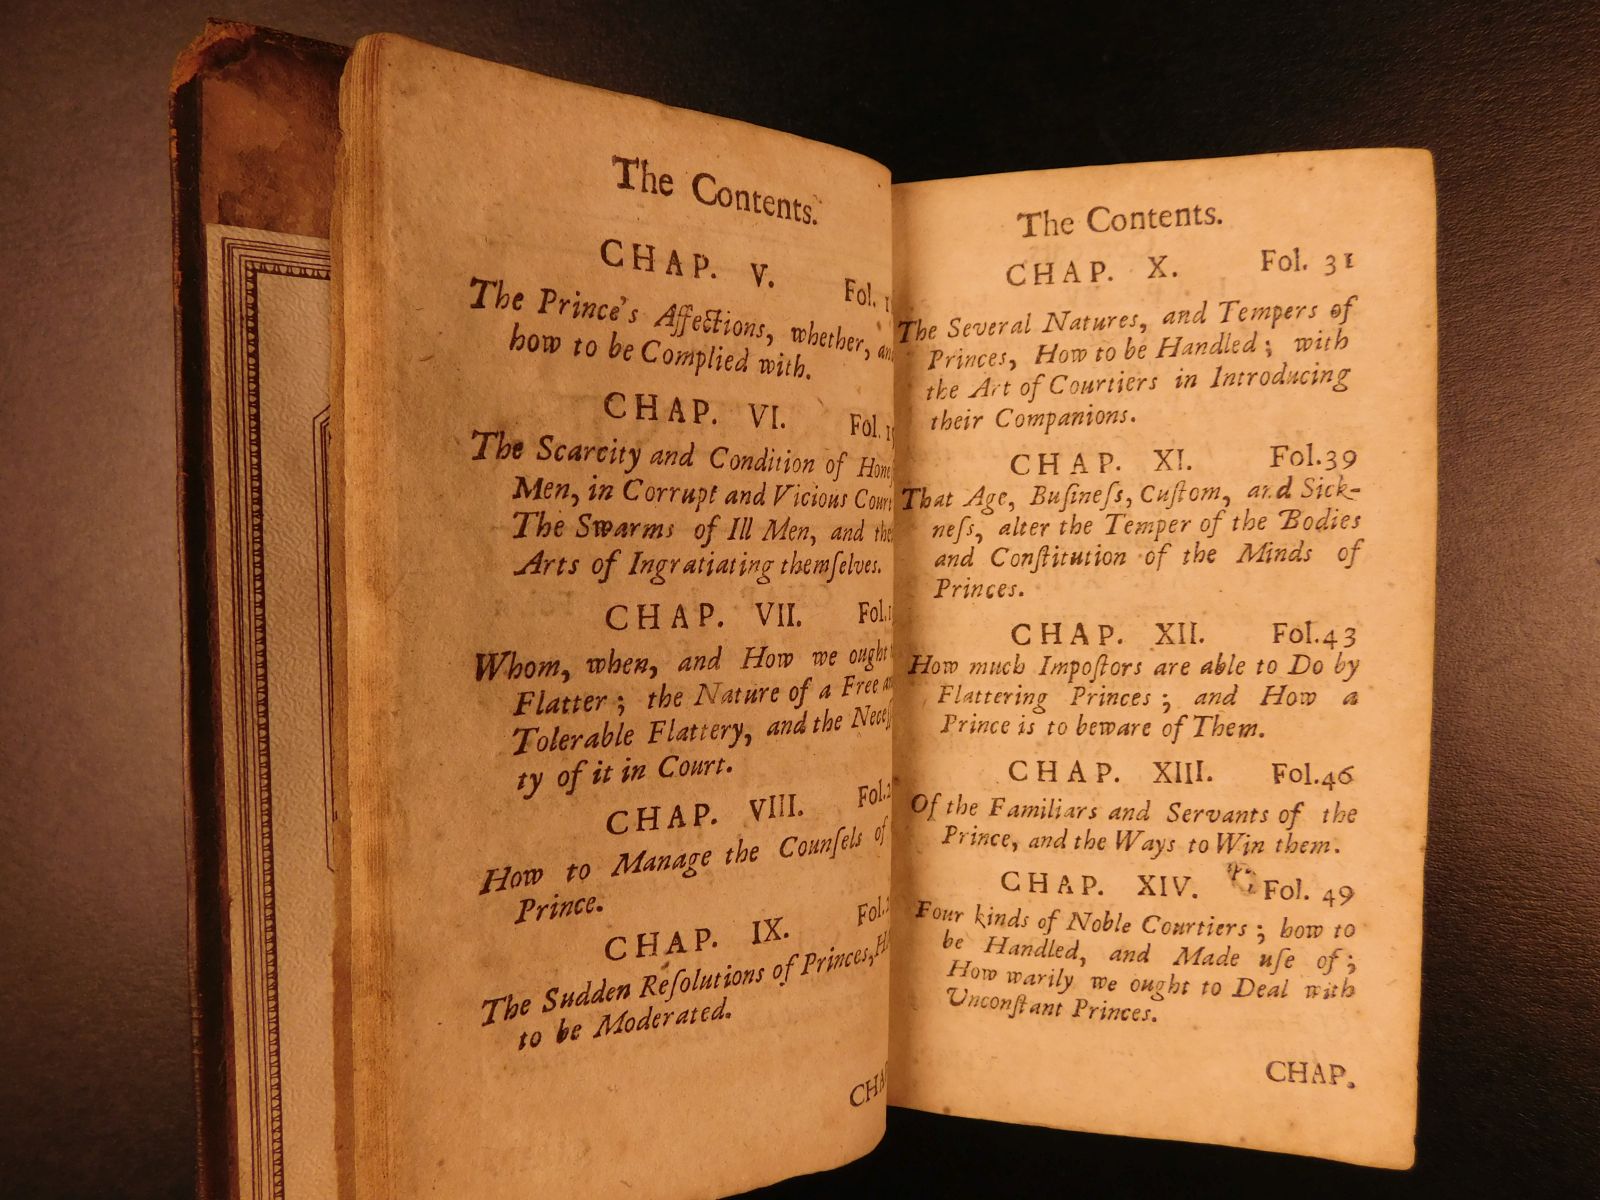 The Contents.
CHAP. V. Fol.
The Prince's Affections, whether,
how to be Complied with.
CHAP. VI. Fol.
The Scarcity and Condition of
Men, in Corrupt and Vicious
The Swarms of Ill Men, and
Arts of Ingratiating themſelves.
CHAP. VII. Fol.
Whom, when, and How we ought
Flatter; the Nature of a Free
Tolerable Flattery, and the
ty of it in Court.
CHAP. VIII. Fol.
How to Manage the Counſels of
Prince.
CHAP. IX. Fol.
The Sudden Reſolutions of Princes,
to be Moderated.
The Contents.
CHAP. X. Fol. 31
The Several Natures, and Tempers of
Princes, How to be Handled; with
the Art of Courtiers in Introducing
their Companions.
CHAP. XI. Fol.39
That Age, Buſineſs, Cuſtom, and Sick-
neſs, alter the Temper of the Bodies
and Conſtitution of the Minds of
Princes.
CHAP. XII. Fol.43
How much Impoſtors are able to Do by
Flattering Princes; and How a
Prince is to beware of Them.
CHAP. XIII. Fol.46
Of the Familiars and Servants of the
Prince, and the Ways to Win them.
CHAP. XIV. Fol. 49
Four kinds of Noble Courtiers; how to
be Handled, and Made uſe of;
How warily we ought to Deal with
Unconſtant Princes.
CHAP.